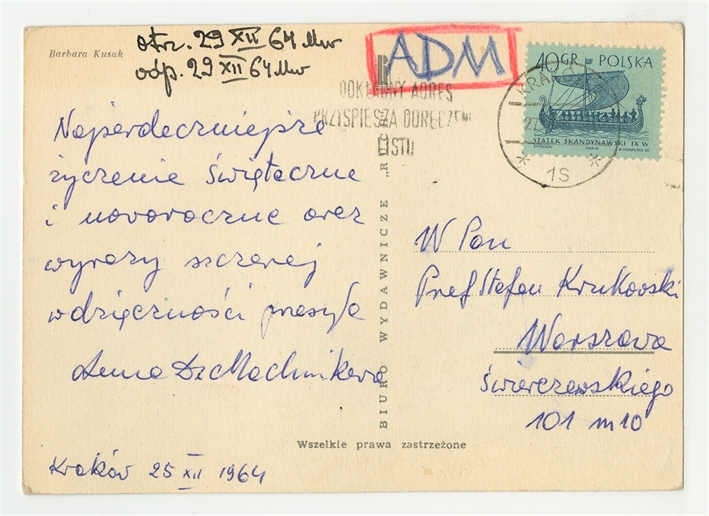 Barbara Kusak
otrz. 29 XII 64
odp. 29 XII 64
ADM
DOKŁADNY ADRES
PRZYSPIESZA DORĘCZENI
LISTU
40 GR POLSKA
STATEK SKANDYNAWSKI IX W
KRAKÓ
1S
Najserdeczniejsze
życzenie świąteczne
i noworoczne oraz
wyrazy szczerej
wdzięczności przesyła
Anna Dz Machnikowa
Kraków 25 XII 1964
BIURO WYDAWNICZE „RUCH"
W Pan
Prof Stefan Krukowski
Warszawa
Świerczewskiego
101 m 10
Wszelkie prawa zastrzeżone